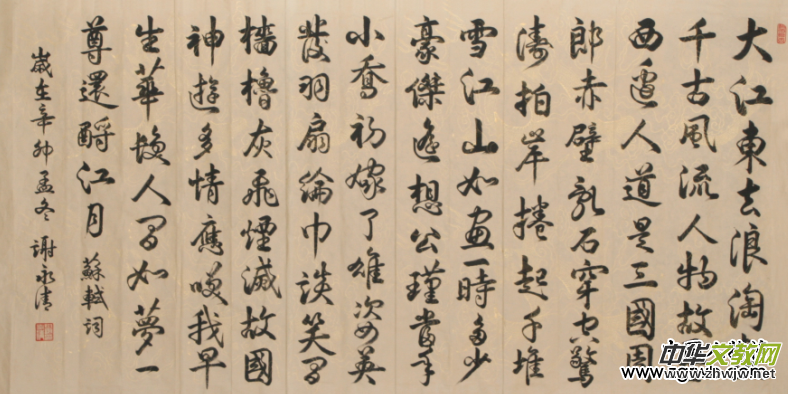 大江東去浪淘
千古風流人物故
西邊人道是三國周
郎赤壁亂石穿空驚
濤拍岸捲起千堆
雪江山如畫一時多少
豪傑遙想公瑾當年
小喬初嫁了雄姿英
發羽扇綸巾談笑間
檣櫓灰飛煙滅故國
神遊多情應嘆我早
生華髮人間如夢一
尊還酹江月 蘇軾詞
歲在辛卯孟冬 謝永清
中华文教网
www.zhwjw.net